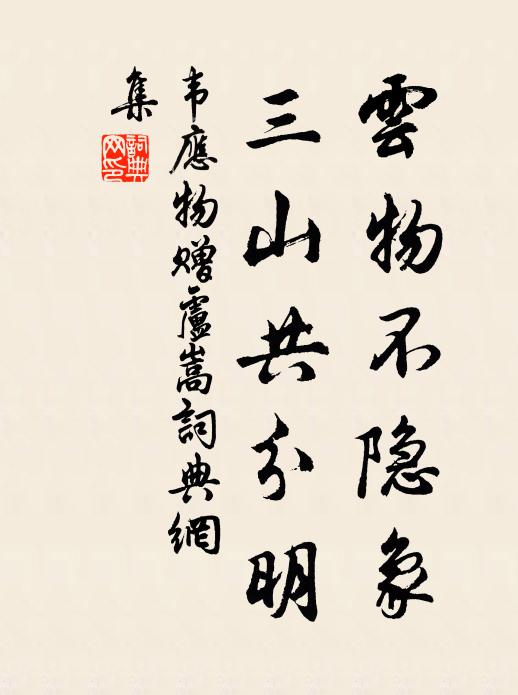 雲物不隐象
三山共分明
韦應物赠盧嵩詞典網
集
詞典网印